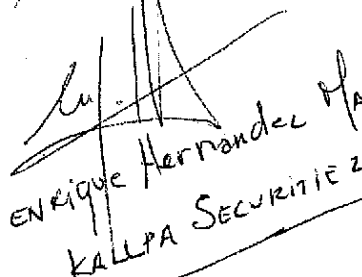 ENRIQUE Hernandez MA
KALLPA SECURITIES